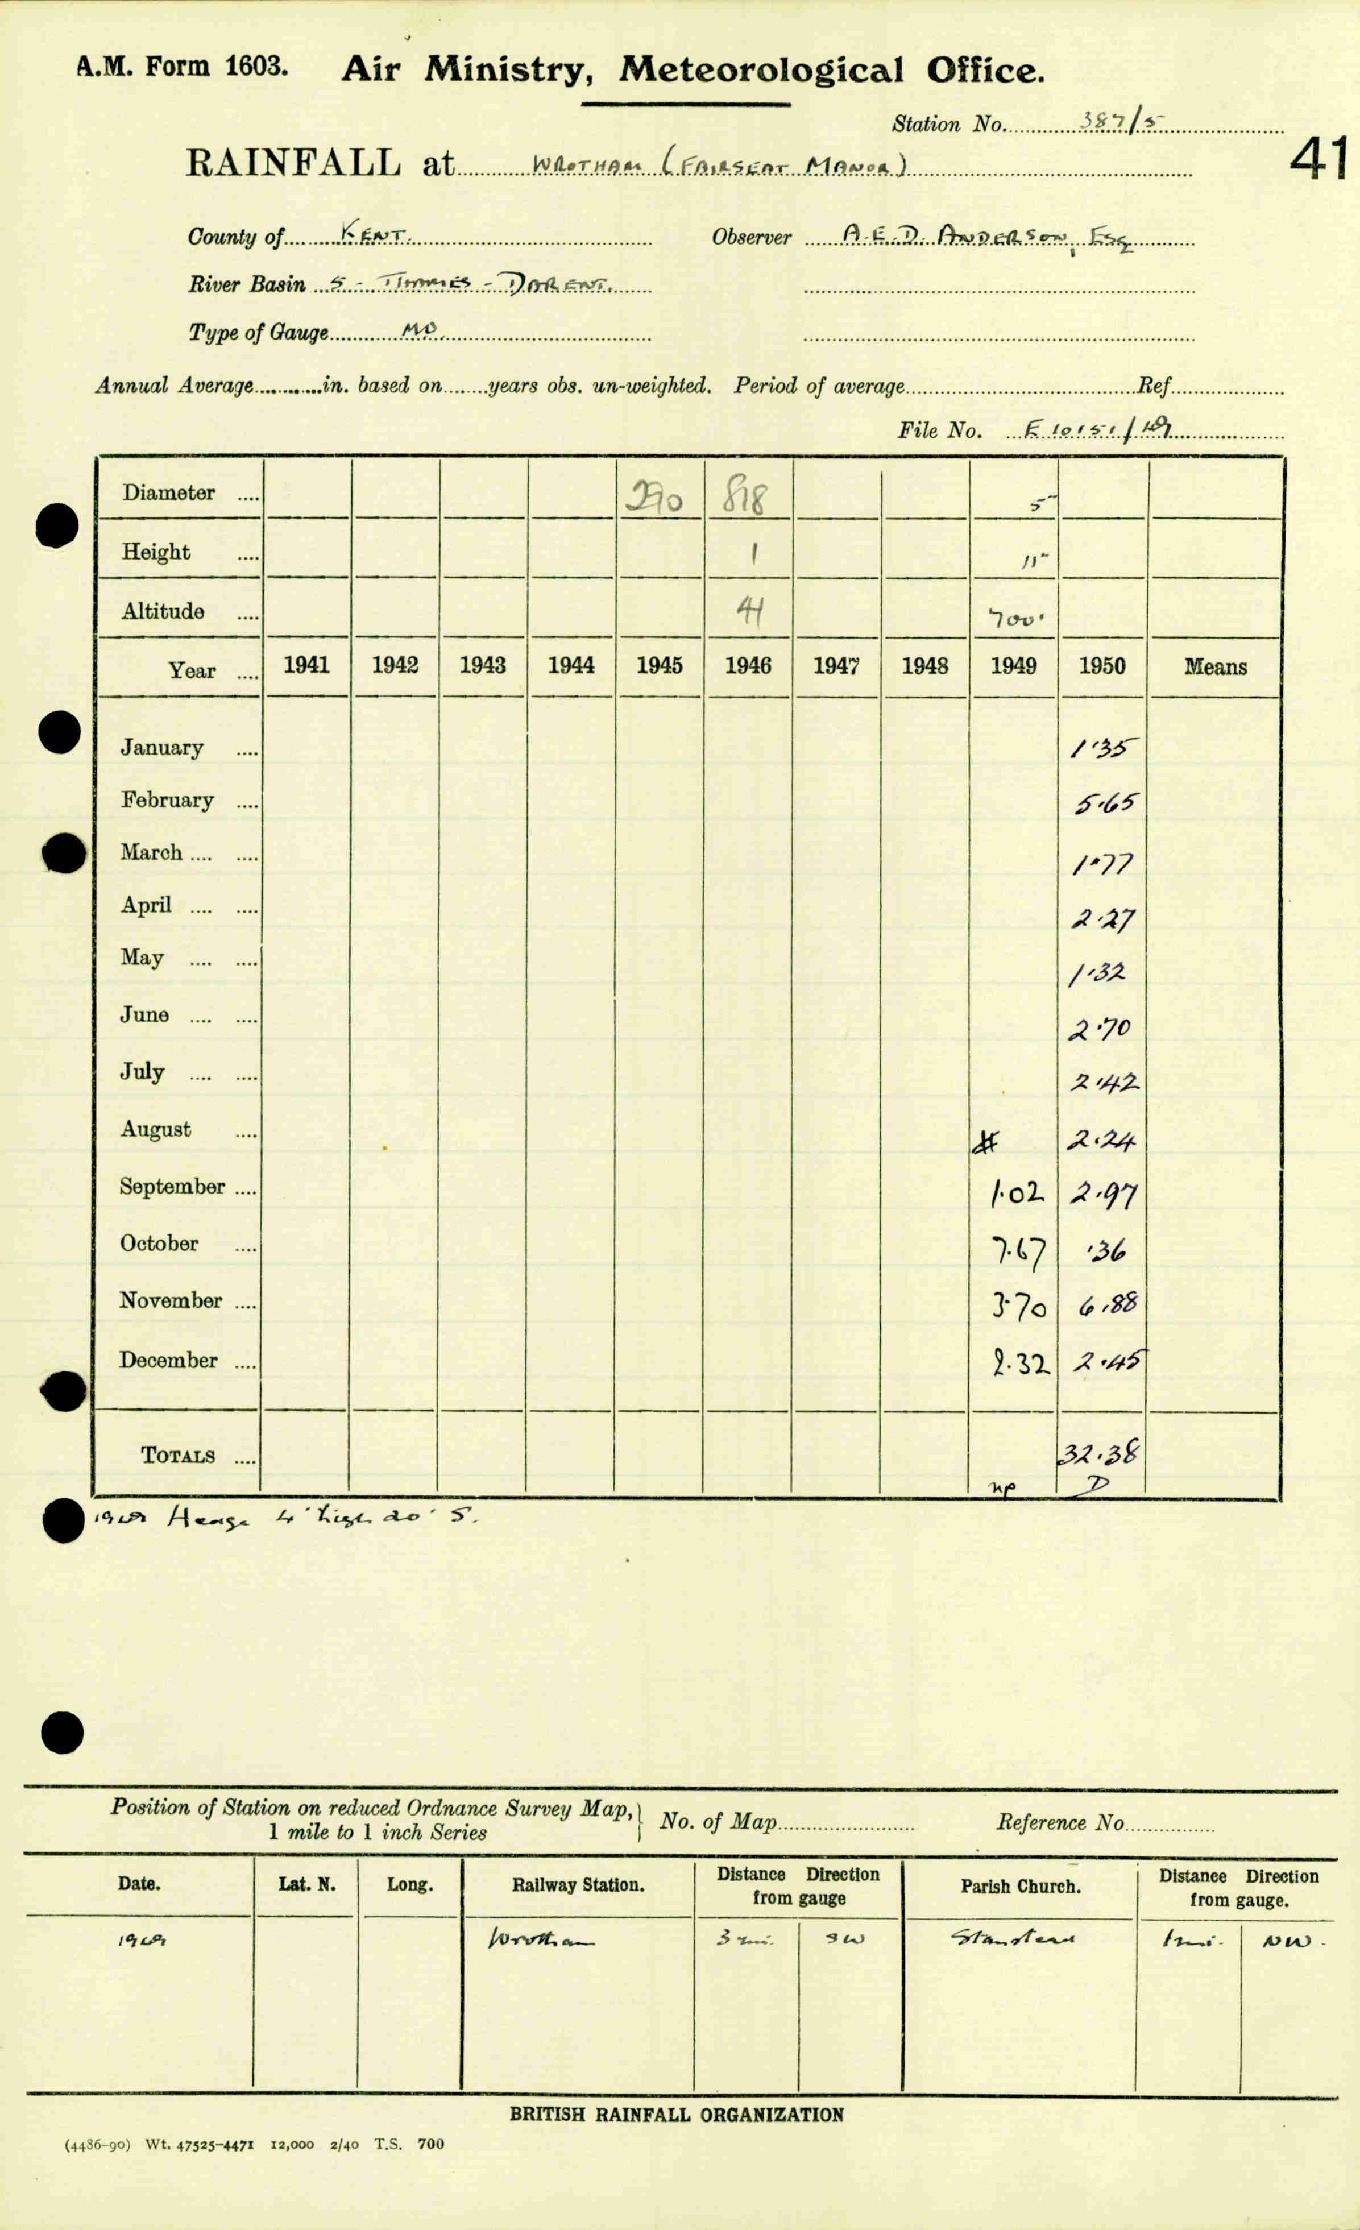 A.M. Form 1603. Air Ministry, Meteorological Office.
Station No. 387/5
RAINFALL at WROTHAM (FAIRSEAT MANOR) 41
County of KENT. Observer A.E.D. ANDERSON, ESQ
River Basin 5 - THAMES - DARENT.
Type of Gauge MO
Annual Average in. based on years obs. un-weighted. Period of average Ref.
File No. E 10151/49
Diameter 290 818 5"
Height 1 11"
Altitude 41 700'
Year 1941 1942 1943 1944 1945 1946 1947 1948 1949 1950 Means
January 1.35
February 5.65
March 1.77
April 2.27
May 1.32
June 2.70
July 2.42
August 2.24
September 1.02 2.97
October 7.67 .36
November 3.70 6.88
December 2.32 2.45
TOTALS 32.38
np D
1949 Hedge 4' high 20' S.
Position of Station on reduced Ordnance Survey Map, } No. of Map Reference No.
1 mile to 1 inch Series
Date. Lat. N. Long. Railway Station. Distance Direction from gauge Parish Church. Distance Direction from gauge.
1949 Wrotham 3 mi. SW Stanstead 1 mi. NW.
BRITISH RAINFALL ORGANIZATION
(4486-90) Wt. 47525-4471 12,000 2/40 T.S. 700